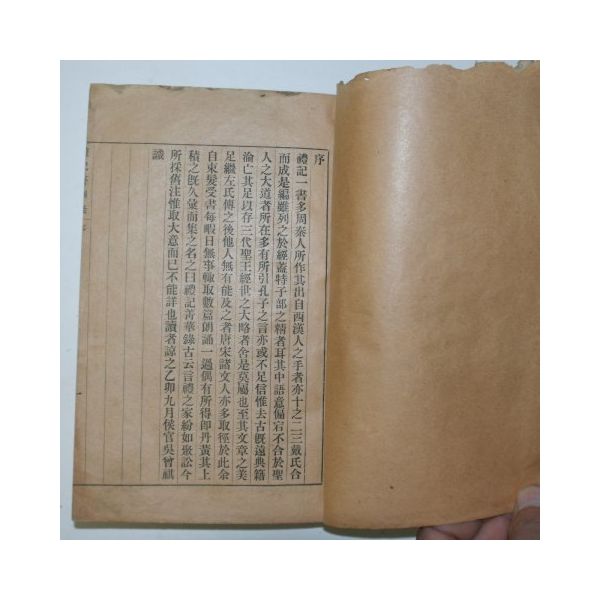 序
禮記一書多周秦人所作其出自西漢人之手者亦十之二三戴氏合
而成是編雖列之於經蓋特子部之精者耳其中語意偏宕不合於聖
人之大道者所在多有所引孔子之言亦或不足信惟去古旣遠典籍
淪亡其足以存三代聖王經世之大略者舍是莫屬也至其文章之美
足繼左氏傳之後他人無有能及之者唐宋諸文人亦多取徑於此余
自束髮受書每暇日無事輒取數篇朗誦一過偶有所得卽丹黃其上
積之旣久彙而集之名之曰禮記菁華錄古云言禮之家紛如聚訟今
所採舊注惟取大意而已不能詳也讀者諒之乙卯九月侯官吳曾祺
識